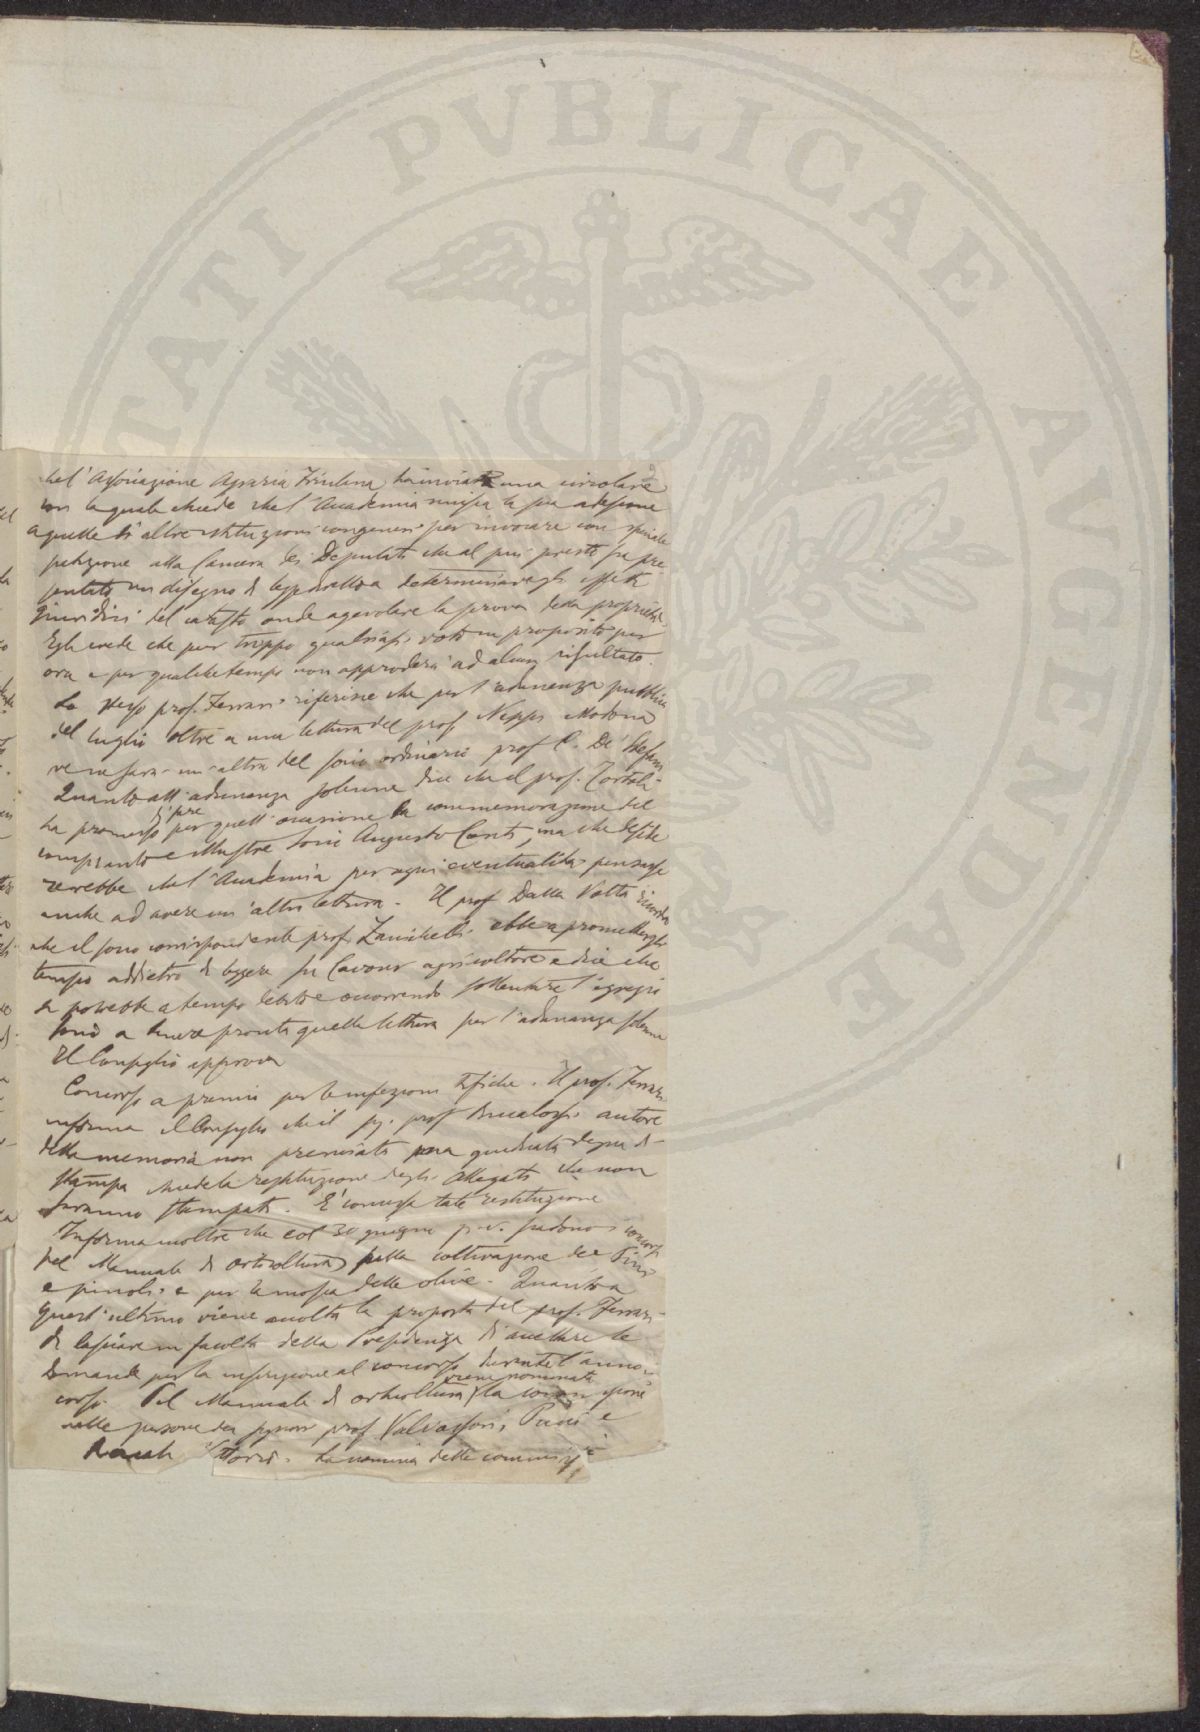 che l'Associazione Agraria Friulana ha inviato una circolare
con la quale chiede che l'Accademia unisca la sua adesione
a quella di altre istituzioni congeneri per invocare con speciale
petizione alla Camera dei Deputati che al più presto sia pre
sentato un disegno di legge diretto a determinare gli effetti
giuridici del catasto onde agevolare la prova della proprietà.
Egli crede che pur troppo qualsiasi voto in proposito per
ora e per qualche tempo non approderà ad alcun risultato.
Lo stesso prof. Ferrari riferisce che per l'adunanza pubblica
del luglio oltre a una lettura del prof Neppi Modona
ve ne sarà un'altra del socio ordinario prof C. De' Stefani
Quanto all'adunanza solenne dice che il prof. Tortoli
ha promesso di fare per quell'occasione la commemorazione del
compianto e illustre socio Augusto Conti, ma che deside
rerebbe che l'Accademia per ogni eventualità pensasse
anche ad avere un'altra lettura. Il prof Dalla Volta ricorda
che il socio corrispondente prof. Zanichelli ebbe a promettergli
tempo addietro di leggere su Cavour agricoltore e dice che
si potrebbe a tempo debito e occorrendo sollecitare l'egregio
socio a tenere pronta quella lettura per l'adunanza solenne
Il Consiglio approva
Concorso a premio per le infezioni tifiche. Il prof. Ferrari
informa il Consiglio che il sig. prof Bucalossi autore
della memoria non premiata ma giudicata degna di
stampa chiede la restituzione degli allegati che non
saranno stampati. È concessa tale restituzione
Informa inoltre che col 30 giugno p.v. scadono i concorsi
pel Manuale di orticoltura, sulla coltivazione dei Pini
e pinoli e per la mosca delle olive. Quanto a
quest'ultimo viene accolta la proposta del prof. Ferrari
di lasciare in facoltà della Presidenza di accettare le
domande per la inscrizione al concorso durante l'anno in
corso. Pel Manuale di orticoltura viene nominata la commissione
nelle persone dei signori prof. Valvassori, Pucci e
Racah Vittorio. La nomina della commissi